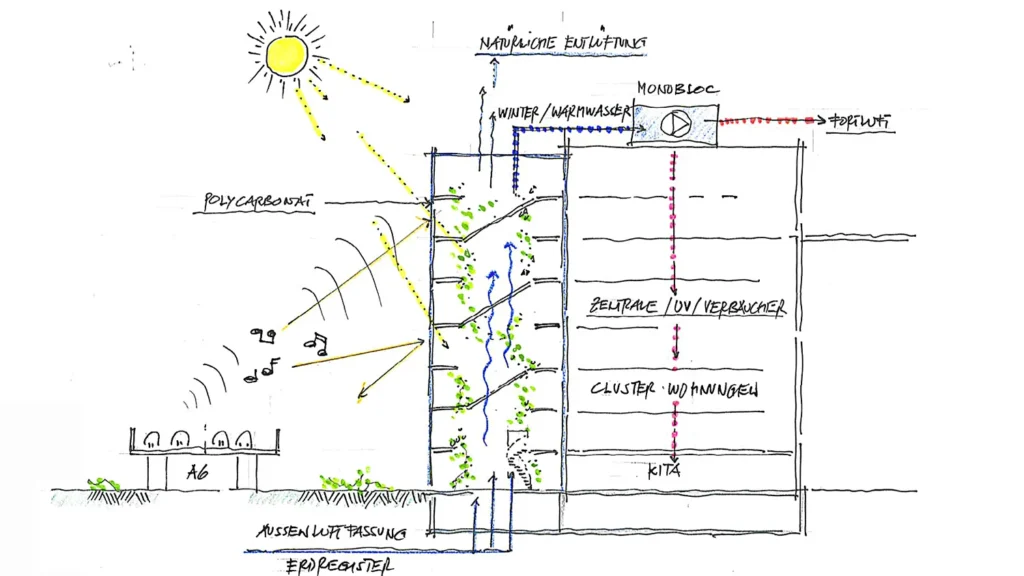 NATÜRLICHE ENTLÜFTUNG
MONOBLOC
WINTER/WARMWASSER
FORTLUFT
POLYCARBONAT
ZENTRALE/UV/VERBRAUCHER
CLUSTER·WOHNUNGEN
A6
KITA
AUSSENLUFTFASSUNG
ERDREGISTER